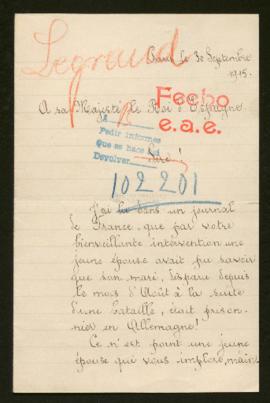 Legraud
Paris le 30 Septembre
1915.
A sa Majesté le Roi d'Espagne
Fecho
e.a.e.
Pedir informes
Que se hace
Devolver
Sire!
102201
J'ai lu dans un journal
de France, que par votre
bienveillante intervention une
jeune épouse avait pu savoir
que son mari, disparu depuis
le mois d'Août à la suite
d'une bataille, était prison-
nier en Allemagne!
Ce n'est point une jeune
épouse qui vous implore, mais